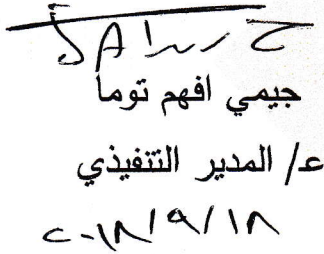 جيمي افهم توما
ع/ المدير التنفيذي
٢٠١٨/٩/١٨